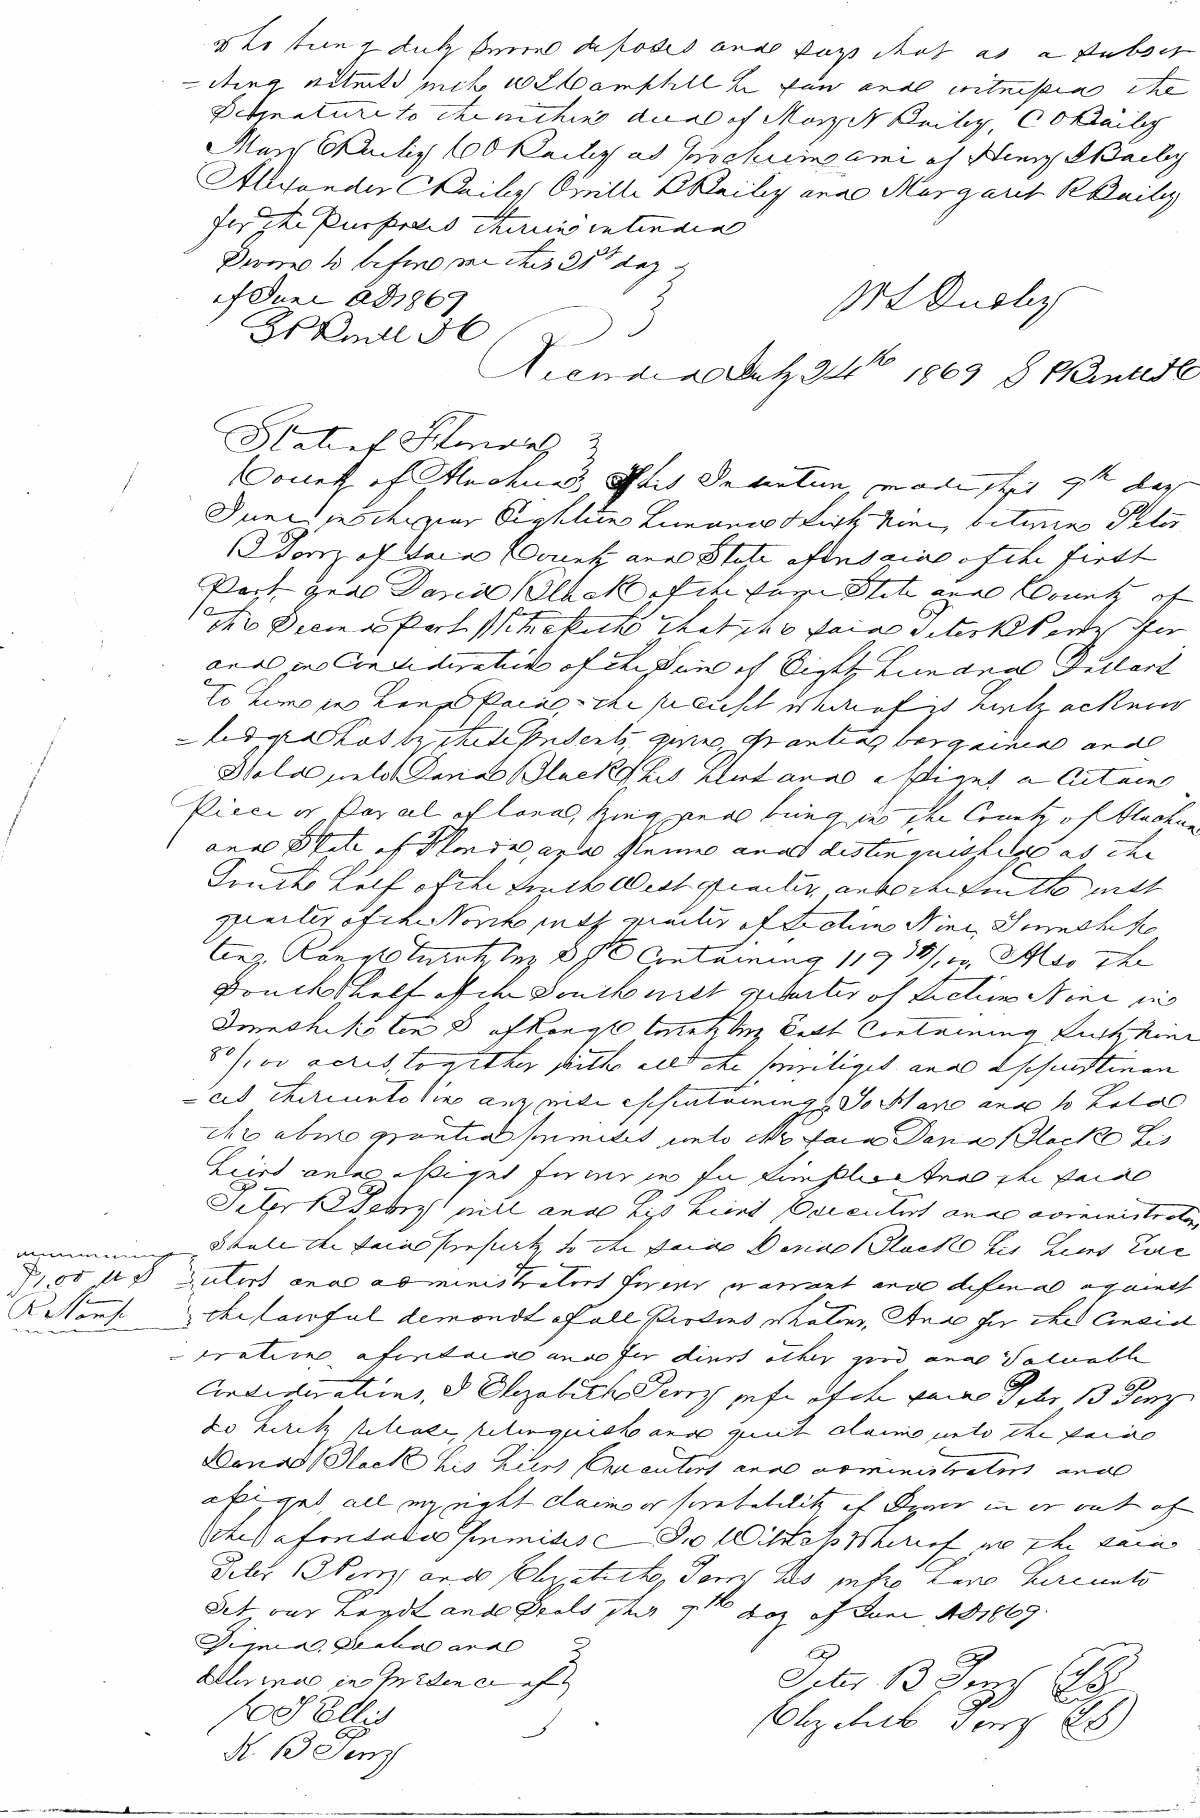 who being duly sworn deposes and says that as a subscr
-ibing witness with W L Camphell he saw and witnessed the
Signature to the within deed of Mary N Bailey, C O Bailey
Mary E Bailey C O Bailey as prochein ami of Henry S Bailey
Alexander C Bailey Orville P Bailey and Margaret R Bailey
for the Purposes therein intended
Sworn to before me this 21st day
of June AD 1869
W L Dudley
Recorded July 24th 1869
State of Florida
County of Alachua This Indenture made this 9th day
June in the year Eighteen hundred & Sixty Nine, between Peter
B Perry of said County and State aforesaid of the first
Part and David Black of the same State and County of
the Second Part Witnesseth that the said Peter B Perry for
and in Consideration of the Sum of Eight hundred Dollars
to him in hand Paid - the receipt whereof is hereby acknow
-ledged has by these presents, given, granted, bargained and
Sold unto David Black his heirs and assigns a Certain
Piece or Parcel of land, lying and being in the County of Alachua
and State of Florida, and known and distinguished as the
South half of the South West quarter, and the South west
quarter of the North west quarter of Section Nine, Township
ten, Range twenty S & E Containing 119 /100, Also the
South half of the South west quarter of Section Nine in
Township ten S of Range twenty East Containing Sixty Nine
80/100 acres, together with all the priviliges and appurtinan
-ces thereunto in any wise appertaining, To Have and to hold
the above granted premises unto the said David Black his
heirs and assigns forever in fee simple And the said
Peter B Perry will and his heirs Executors and administrators
Shall the said property to the said David Black his heirs Exec
$1.00 U S
R Stamp
-utors and administrators forever warrant and defend against
the lawful demands of all Persons whatever, And for the Consid
-eration aforesaid and for divers other good and Valuable
Considerations, I Elizabeth Perry wife of the said Peter B Perry
do hereby release, relinquish and quit claim unto the said
David Black his heirs Executors and administrators and
assigns, all my right claim or probability of Dower in or out of
the aforesaid premises In Witness Whereof we the said
Peter B Perry and Elizabeth Perry his wife have hereunto
Set our hands and Seals this 9th day of June AD 1869.
Signed, Sealed and
delivered in Presence of
Peter B Perry LS
Elizabeth Perry LS
Ellis
B Perry